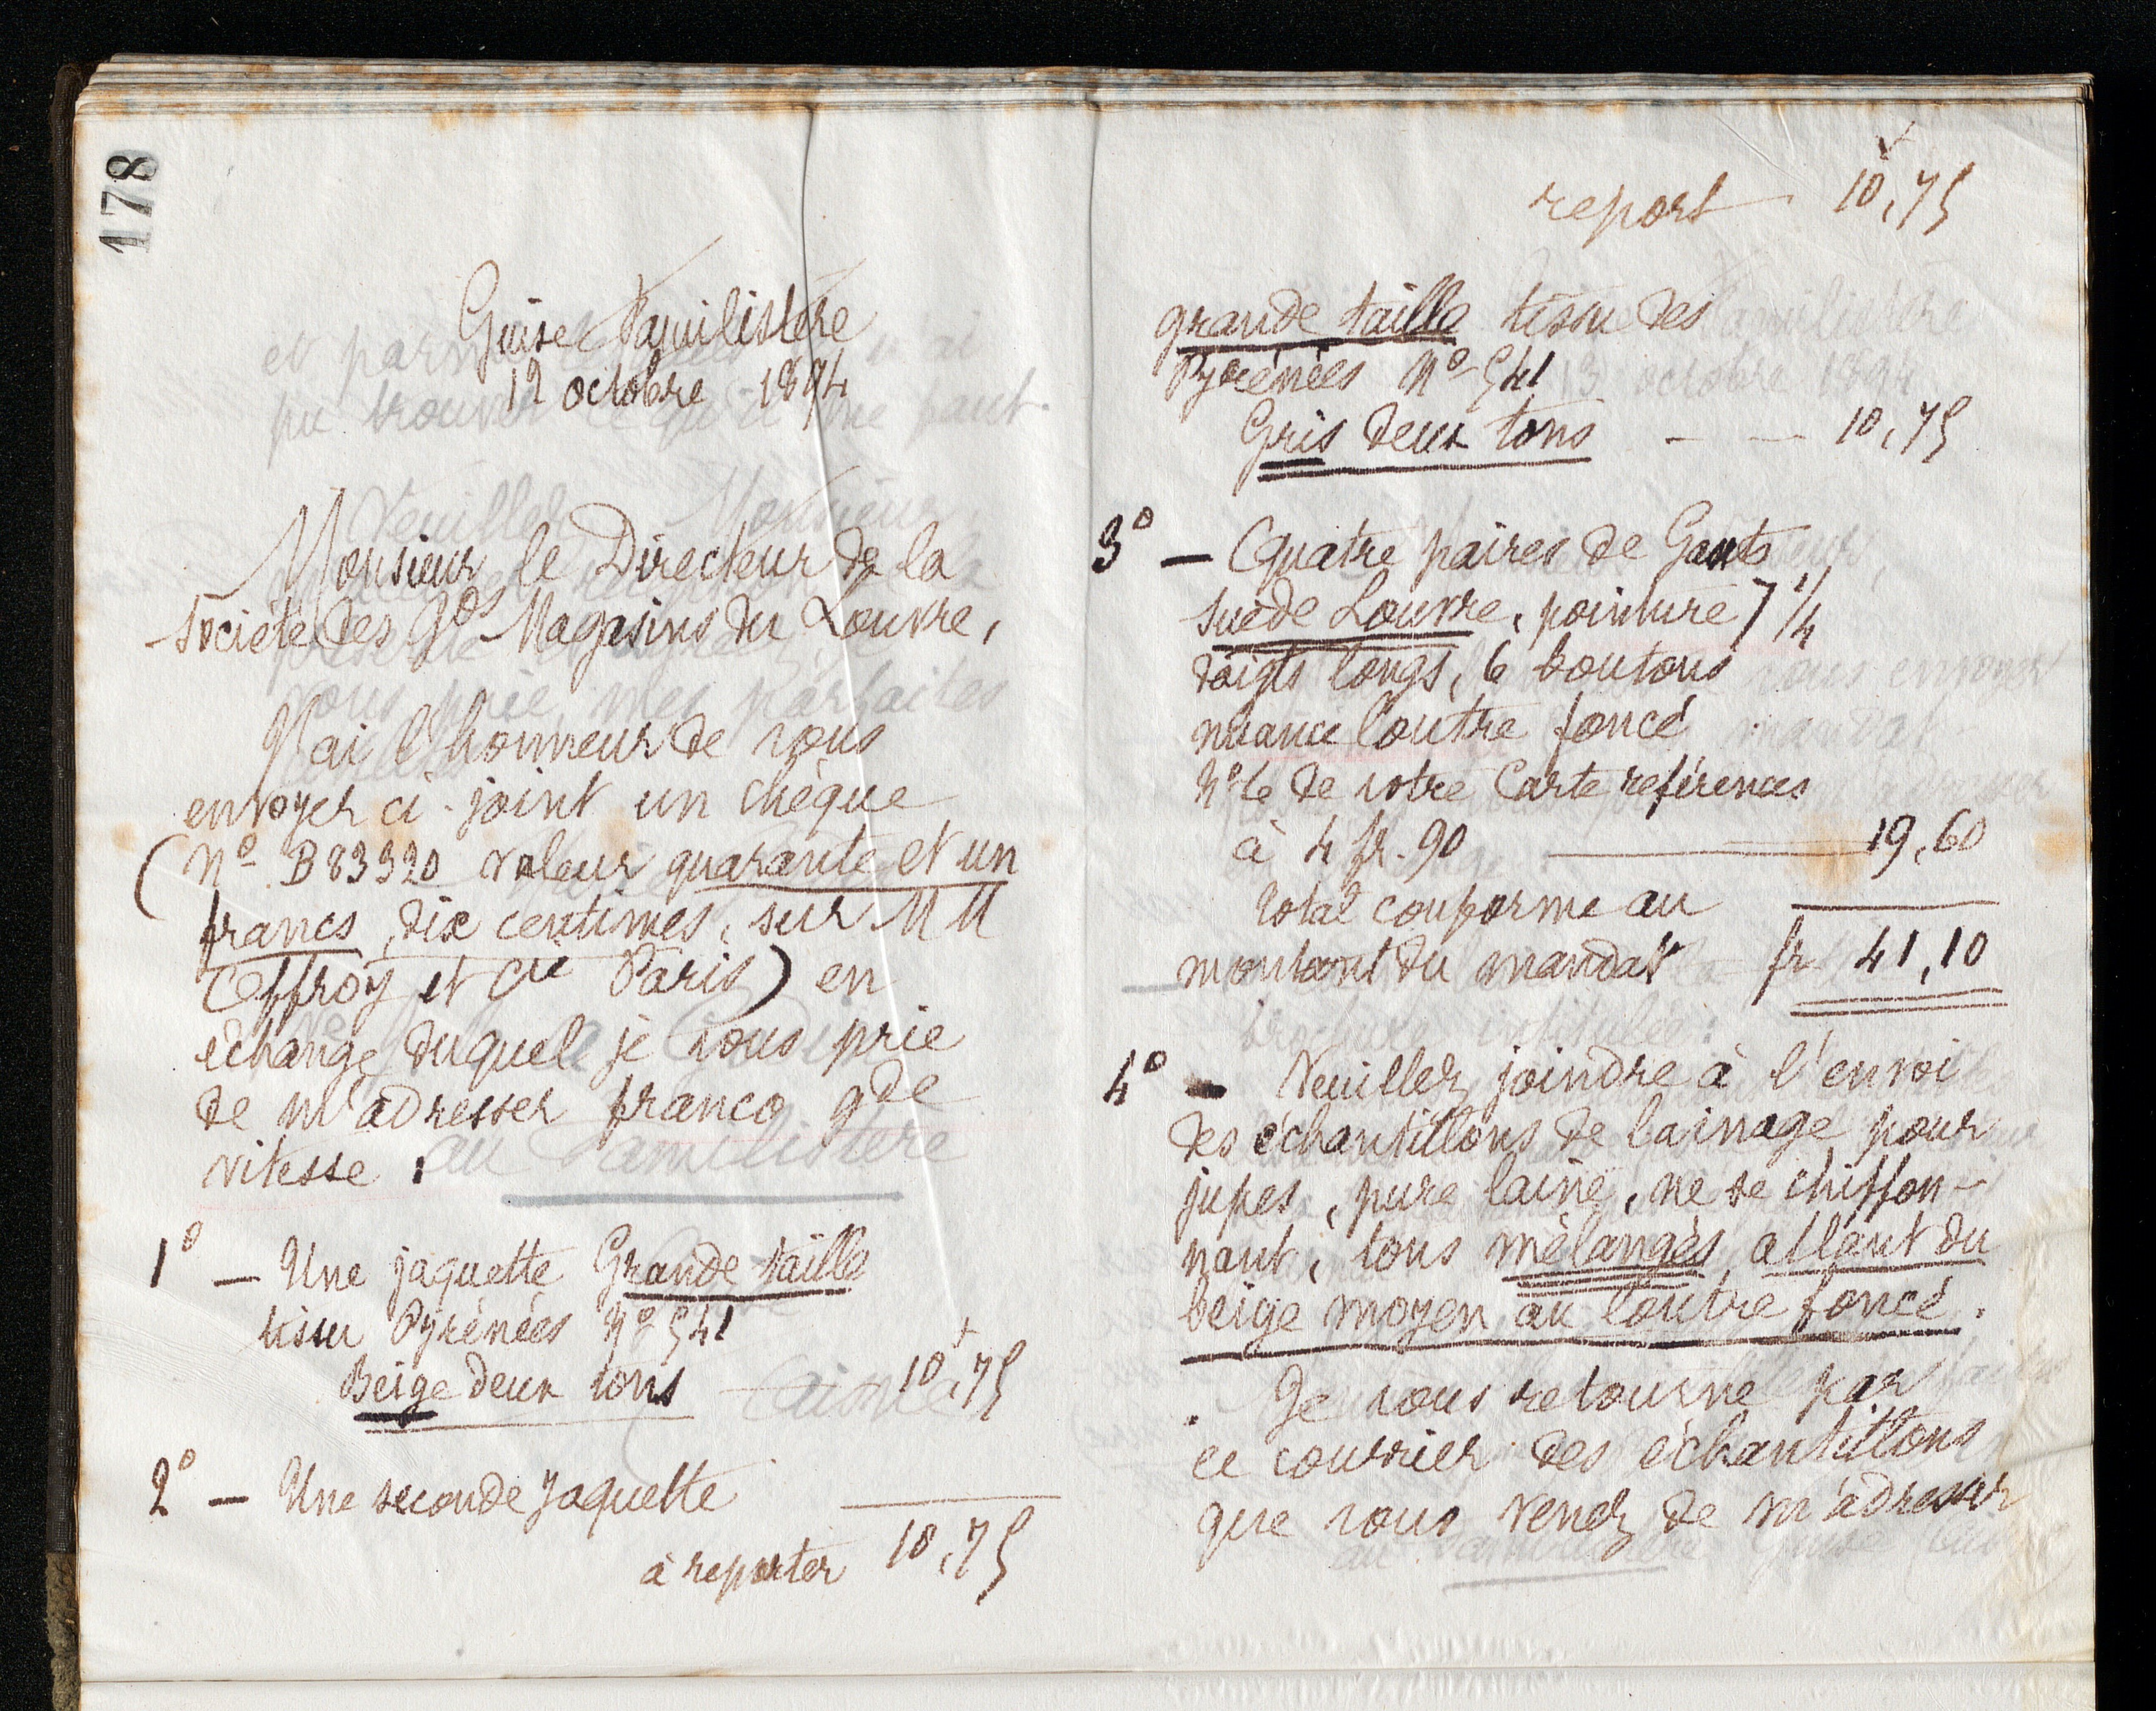 178
Guise Familistère
12 octobre 1894
Monsieur le Directeur de la
Société des Gds Magasins du Louvre,
J'ai l'honneur de vous
envoyer ci-joint un chèque
(No B83920 valeur quarante et un
francs, dix centimes, sur MM
Offroy et Cie Paris) en
échange duquel je vous prie
de m'adresser franco gde
vitesse :
1o — Une jaquette Grande taille
tissu Pyrénées No 541
Beige deux tons 10,75
2o — Une seconde Jaquette
à reporter 10,75
report 10,75
grande taille tissu des
Pyrénées No 541
Gris deux tons — — 10,75
3o — Quatre paires de Gants
suède Louvre, pointure 7 1/4
doigts longs, 6 boutons
nuance loutre foncé
No 6 de votre Carte références
à 4 fr. 90 — 19,60
Total conforme au
montant du mandat fr 41,10
4o — Veuillez joindre à l'envoi
des échantillons de lainage pour
jupes, pure laine, ne se chiffon-
nant, tons mélangés allant du
beige moyen au loutre foncé.
Je vous retourne par
ce courrier des échantillons
que vous venez de m'adresser